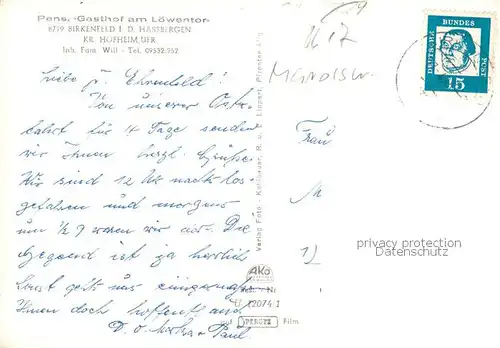 Pens. Gasthof am Löwentor
8729 BIRKENFELD I. D. HASSBERGEN
KR. HOFHEIM UFR.
Inh. Fam. Will - Tel. 09532/252
Liebe Fr. Ehrenfeld!
Von unserer Oster-
fahrt für 14 Tage senden
wir Ihnen herzl. Grüße.
Wir sind 12 Uhr nachts los-
gefahren und morgens
um 1/2 9 waren wir da. Die
Gegend ist ja herrlich
Sonst geht's uns einigermaß.
Ihnen doch hoffentl. auch
D. u. Paul
Verlag Foto - Kohlbauer, R. u. E. Lippert,
AKO
Best. - Nr.
U 12074 I
auf PERUTZ Film
Frau
M
DEUTSCHE BUNDES POST
15
privacy protection
Datenschutz